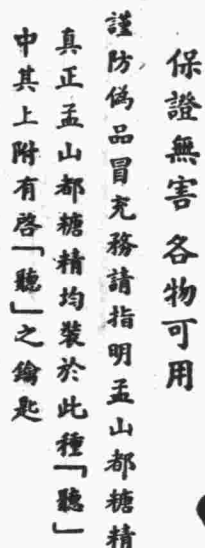 保證無害各物可用
謹防偽品冒充務請指明孟山都糖精
真正孟山都糖精均裝於此種「聽」
中其上附有啓「聽」之鑰匙